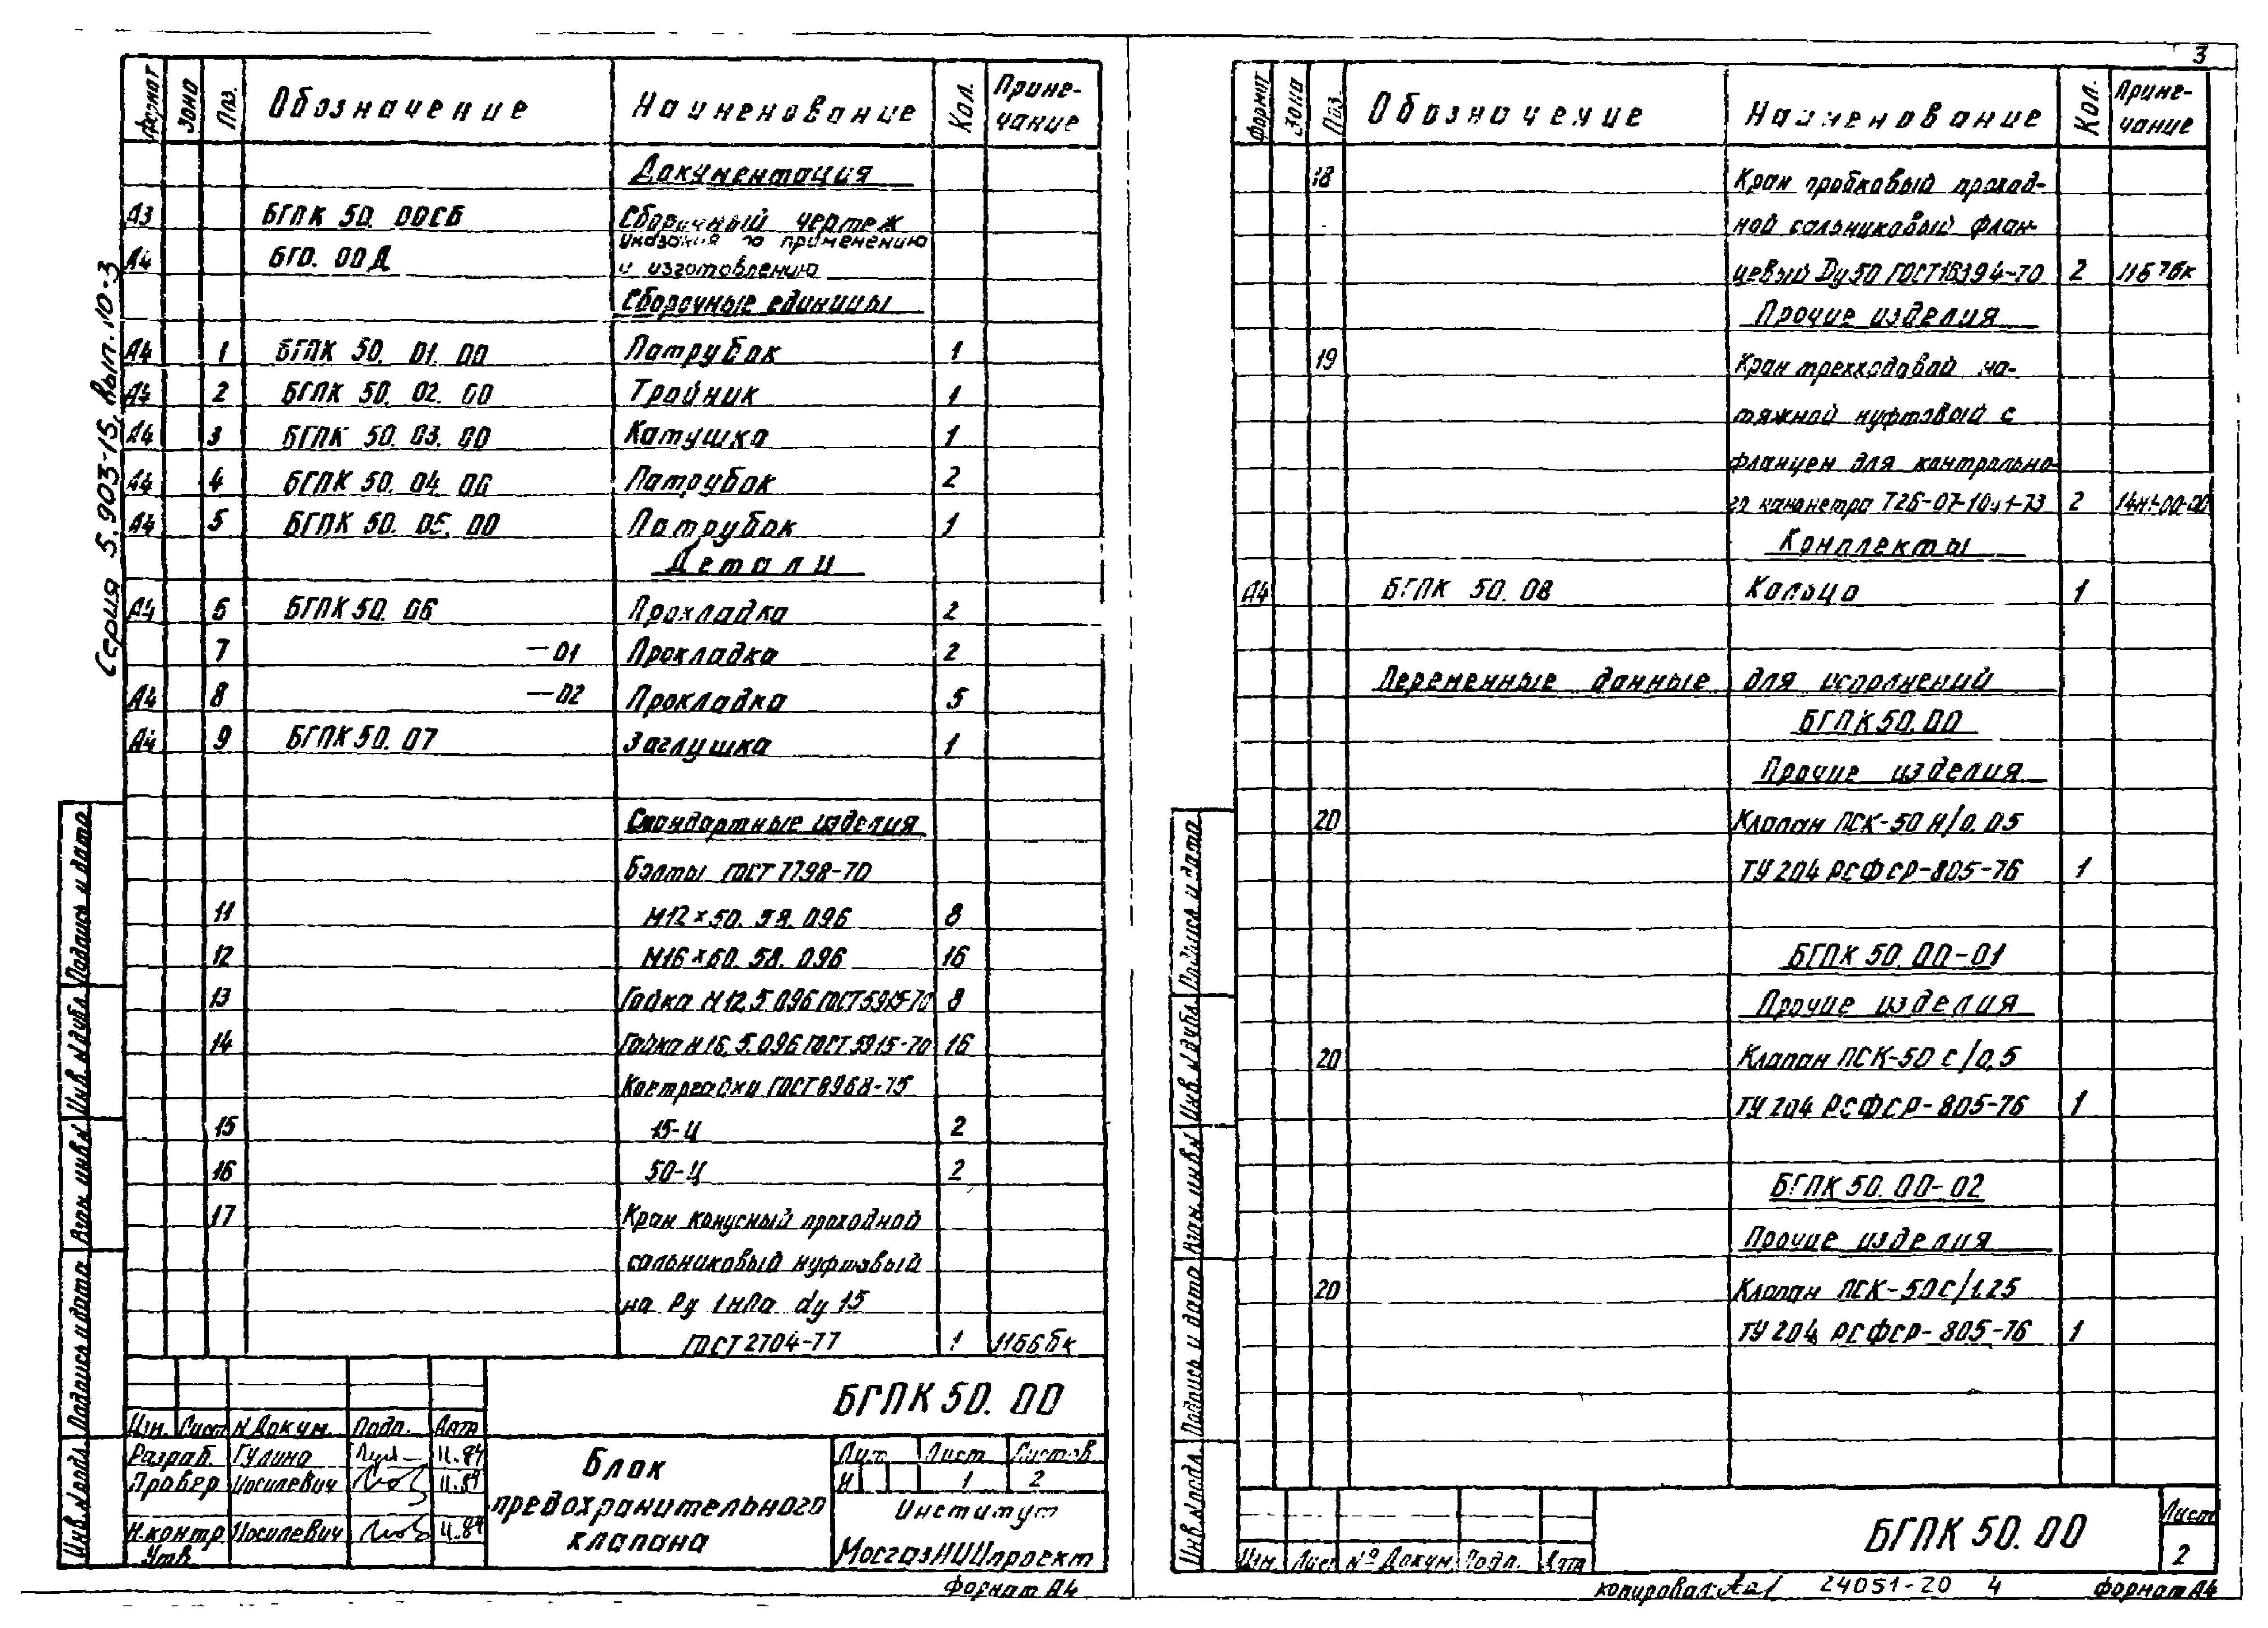 Серия 5.903-15, вып. 10-3
Формат Зона Поз. Обозначение Наименование Кол. Приме-
чание
Документация
А3 БГПК 50. 00СБ Сборочный чертеж
А4 БГО. 00Д Указания по применению
и изготовлению
Сборочные единицы
А4 1 БГПК 50. 01. 00 Патрубок 1
А4 2 БГПК 50. 02. 00 Тройник 1
А4 3 БГПК 50. 03. 00 Катушка 1
А4 4 БГПК 50. 04. 00 Патрубок 2
А4 5 БГПК 50. 05. 00 Патрубок 1
Детали
А4 6 БГПК 50. 06 Прокладка 2
7 —01 Прокладка 2
А4 8 —02 Прокладка 5
А4 9 БГПК 50. 07 Заглушка 1
Стандартные изделия
Болты ГОСТ 7798-70
11 М12×50. 58. 096 8
12 М16×60. 58. 096 16
13 Гайка М12.5.096 ГОСТ 5915-70 8
14 Гайка М16.5.096 ГОСТ 5915-70 16
Контргайка ГОСТ 8968-75
15 15-Ц 2
16 50-Ц 2
17 Кран конусный проходной
сальниковый муфтовый
на Ру 1мПа dу 15
ГОСТ 2704-77 1 11Б6бк
Подпись и дата
Инв. N дубл.
Взам. инв. N
Подпись и дата
Инв. N подл.
Изм. Лист N Докум. Подп. Дата
Разраб. Гулина 11.84
Провер Иосилевич 11.84
Н.контр Иосилевич 11.84
Утв.
БГПК 50. 00
Блок
предохранительного
клапана
Лит Лист Листов
И 1 2
Институт
МосгазНИИпроект
Формат А4
3
Формат Зона Поз. Обозначение Наименование Кол. Приме-
чание
18 Кран пробковый проход-
ной сальниковый флан-
цевый Dу 50 ГОСТ 16394-70 2 11Б7бк
Прочие изделия
19 Кран трехходовой на-
тяжной муфтовый с
фланцем для контрольно-
го манометра Т26-07-1061-73 2 14М1-00-00
Комплекты
А4 БГПК 50. 08 Кольцо 1
Переменные данные для исполнений
БГПК 50. 00
Прочие изделия
20 Клапан ПСК-50 Н/0.05
ТУ 204 РСФСР-805-76 1
БГПК 50. 00-01
Прочие изделия
20 Клапан ПСК-50 С/0,5
ТУ 204 РСФСР-805-76 1
БГПК 50. 00-02
Прочие изделия
20 Клапан ПСК-50С/1.25
ТУ 204 РСФСР-805-76 1
Подпись и дата
Инв. N дубл.
Взам. инв. N
Подпись и дата
Инв. N подл.
Изм. Лист № Докум. Подп. Дата
БГПК 50. 00
Лист
2
копировал: 24051-20 4 Формат А4